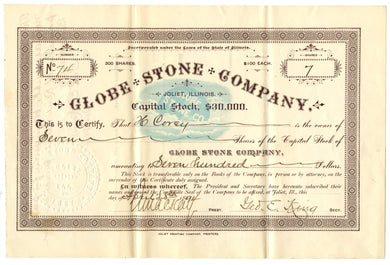 Incorporated under the Laws of the State of Illinois.
NUMBER
SHARES
No
300 SHARES.
$100 EACH.
7
GLOBE STONE COMPANY,
JOLIET, ILLINOIS.
Capital Stock, $30,000.
This is to Certify, That H Corey is the owner of
Seven Shares of the Capital Stock of
GLOBE STONE COMPANY,
amounting to Seven Hundred Dollars.
This Stock is transferable only on the Books of the Company, in person or by attorney, on the
surrender of this Certificate duly assigned.
In witness whereof, The President and Secretary have hereunto subscribed their
names and caused the Corporate Seal of the Company to be affixed, at Joliet, Ill., this
day of April
PREST.
Geo. E. King SECY.
JOLIET PRINTING COMPANY, PRINTERS.